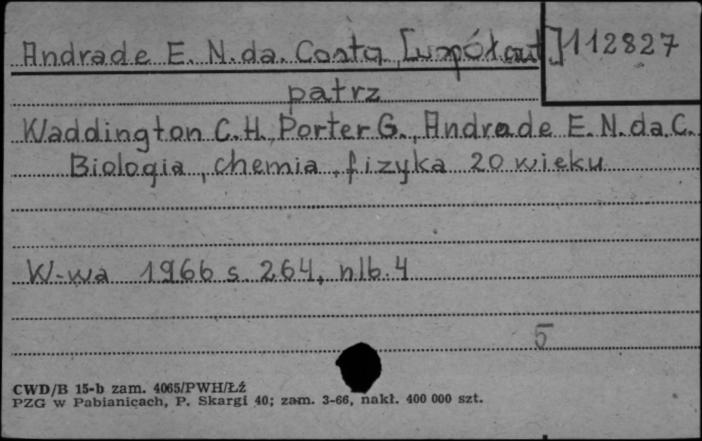 Andrade E. N. da. Costa [współaut] 112827
patrz
Waddington C. H., Porter G., Andrade E. N. da C.
Biologia, chemia, fizyka 20 wieku
W-wa 1966 s. 264, nlb. 4
5
CWD/B 15-b zam. 4065/PWH/ŁŹ
PZG w Pabianicach, P. Skargi 40; zam. 3-66, nakł. 400 000 szt.